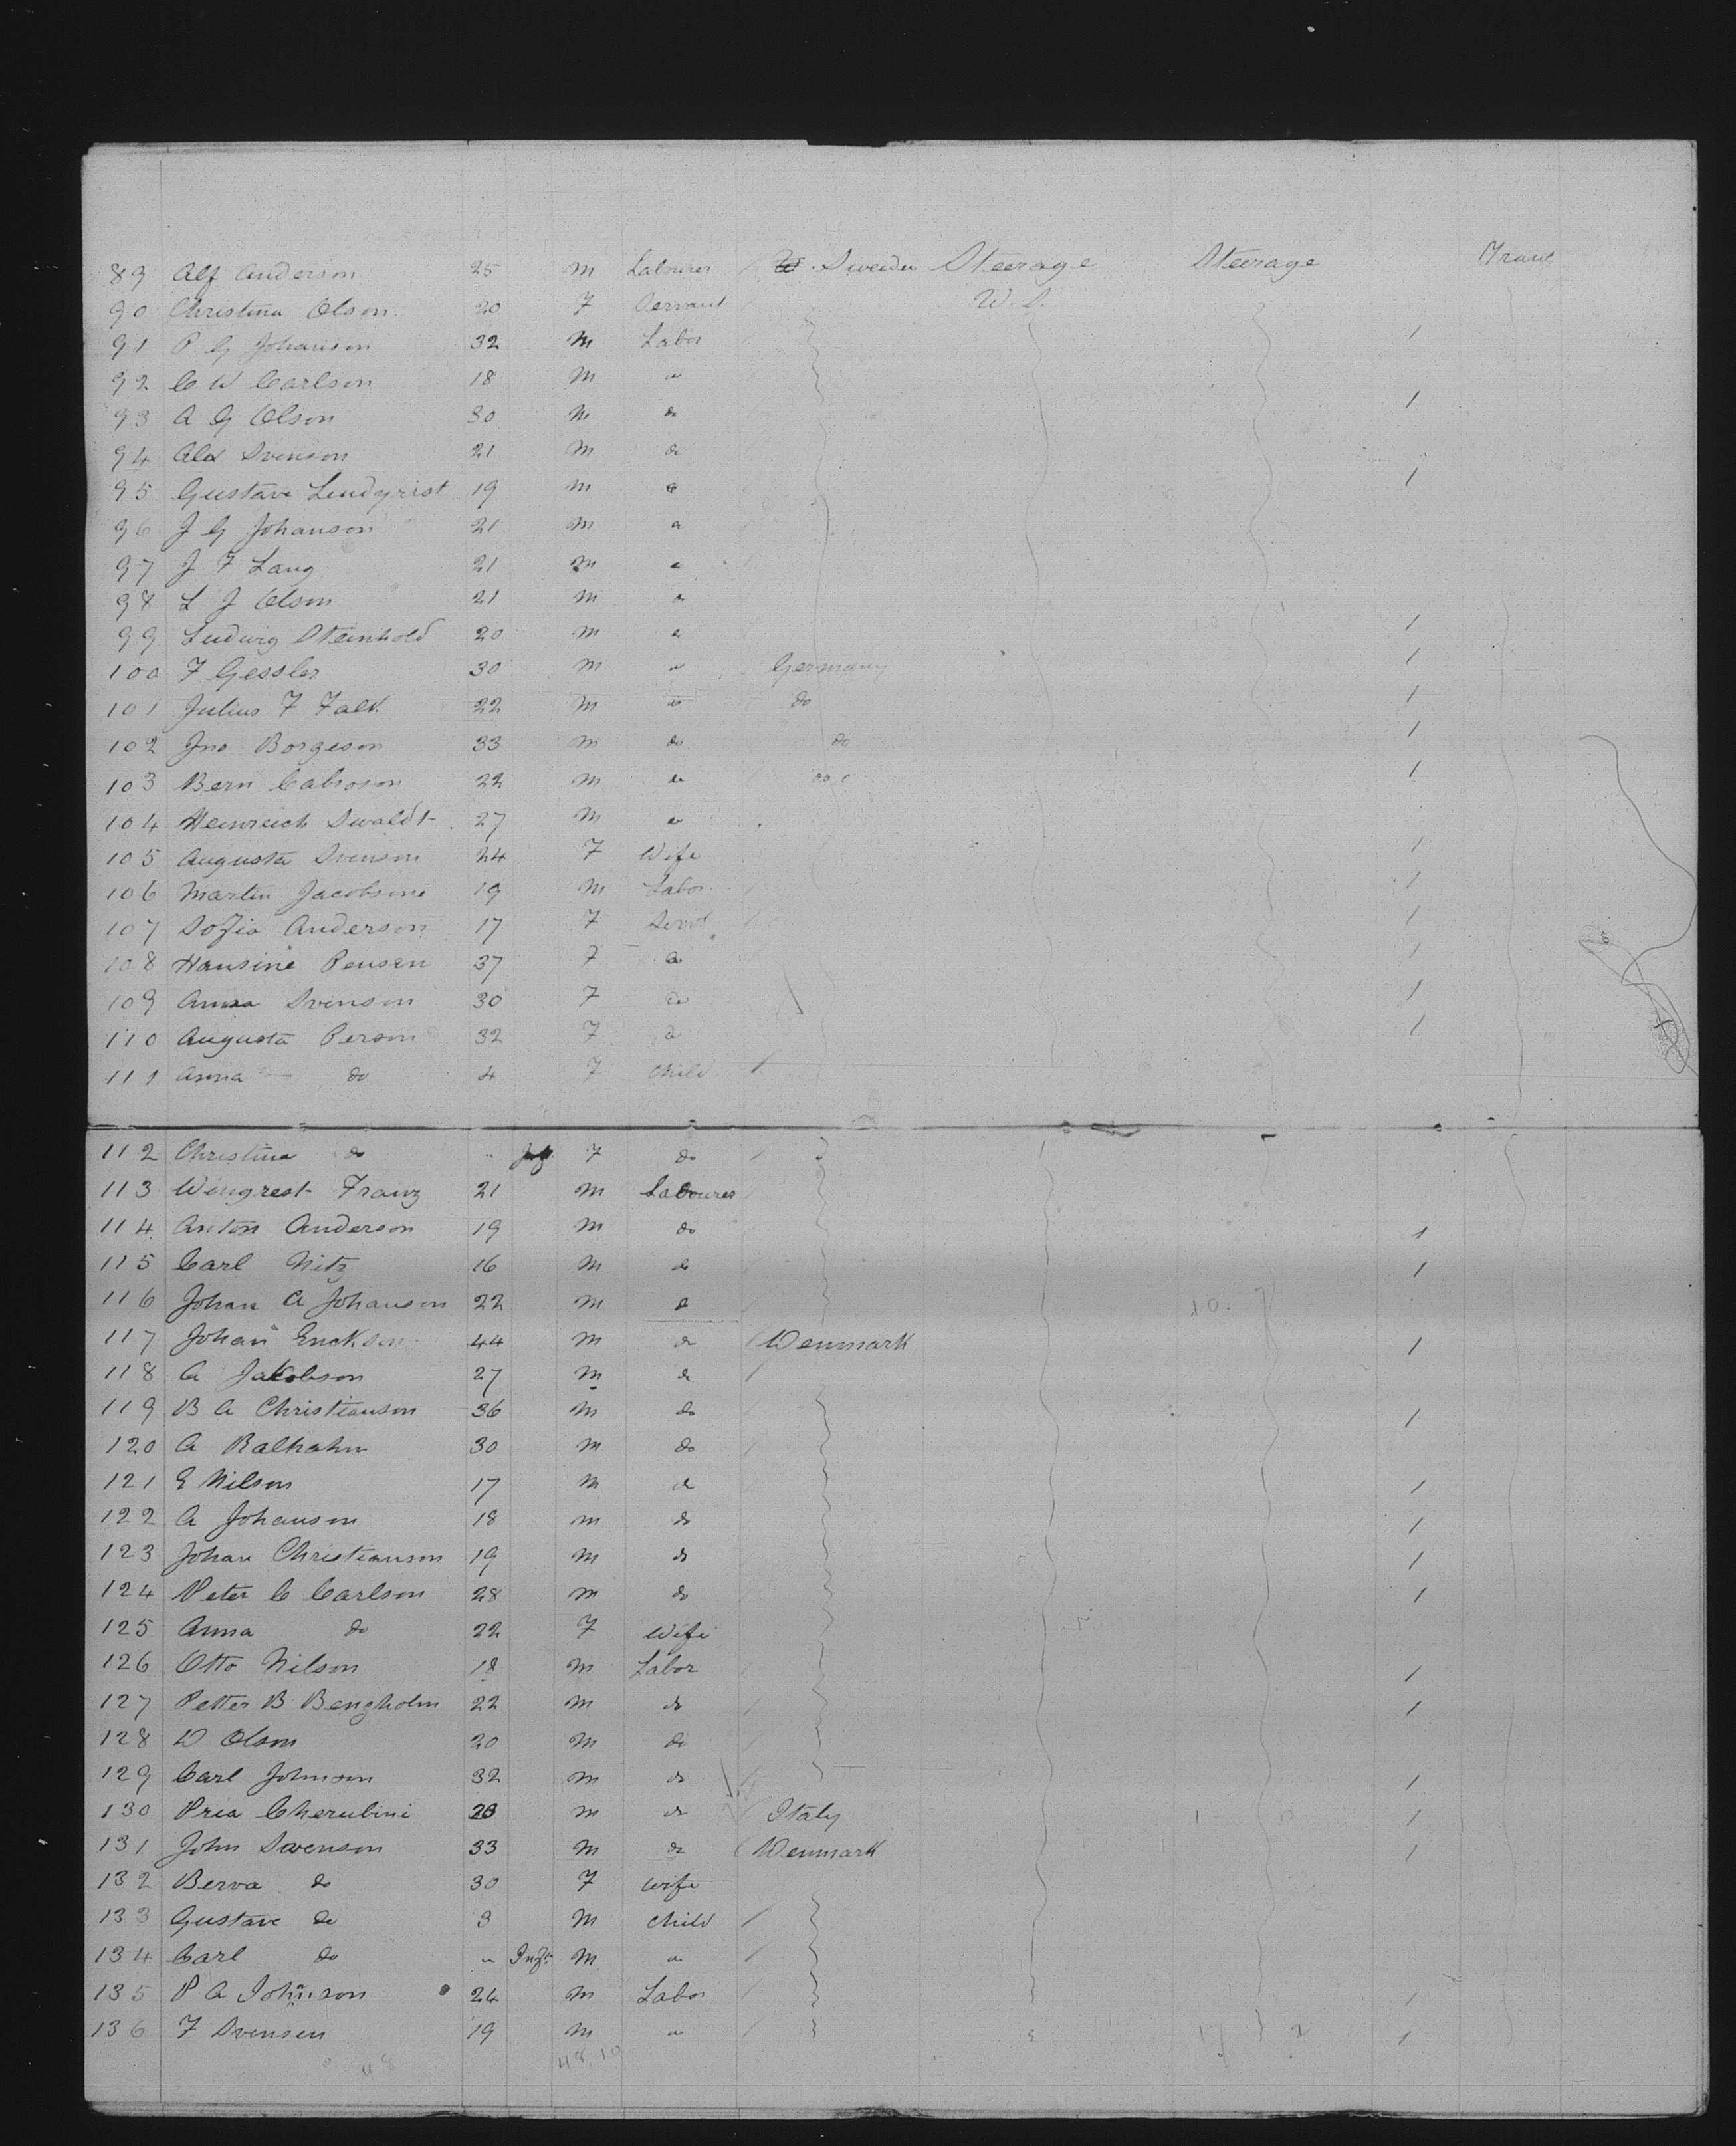 89 Alf Anderson 25 M Labourer Sweden Steerage Steerage
90 Christina Olson 20 F Servant W. S.
91 P G Johanson 32 M Labor 1
92 C W Carlson 18 M "
93 A G Olson 30 M do 1
94 Alex Svenson 21 M do
95 Gustave Lindqrist 19 M do 1
96 J G Johanson 21 M "
97 J F Lang 21 M "
98 L J Olson 21 M "
99 Ludwig Steinhold 20 M " 1
100 F Gessler 30 M " Germany 1
101 Julius F Falk 22 M " do 1
102 Jno Borgeson 33 M do do 1
103 Bern 22 M do 1
104 Heinreich Swaldt 27 M do
105 Augusta Svenson 24 F Wife 1
106 Martin Jacobsone 19 M Labor 1
107 Sofia Anderson 17 F Servt 1
108 Hansine Pensen 37 F do 1
109 Anna Svenson 30 F do 1
110 Augusta Person 32 F do 1
111 Anna do 4 F child
112 Christina do " Inf F do
113 Wingrest Franz 21 M Labourer
114 Anton Anderson 19 M do 1
115 Carl Nitz 16 M do 1
116 Johan A Johanson 22 M do 10.
117 Johan Erickson 44 M do Denmark 1
118 A Jakobson 27 M do
119 B A Christianson 36 M do 1
120 A Ralhahn 30 M do
121 E Nilson 17 M do 1
122 A Johanson 18 M do 1
123 Johan Christianson 19 M do 1
124 Peter C Carlson 28 M do 1
125 Anna do 22 F Wife
126 Otto Nilson 18 M Labor 1
127 Petter B Bengholm 22 M do 1
128 D Olson 20 M do
129 Carl Johnson 32 M do 1
130 Pria Cherubini 23 M do Italy 1
131 John Swenson 33 M do Denmark 1
132 Berva do 30 F wife
133 Gustave do 3 M child
134 Carl do " Inft M "
135 P A Johnson 24 M Labor 1
136 F Svensen 19 M " 17 2 1
48 48 10